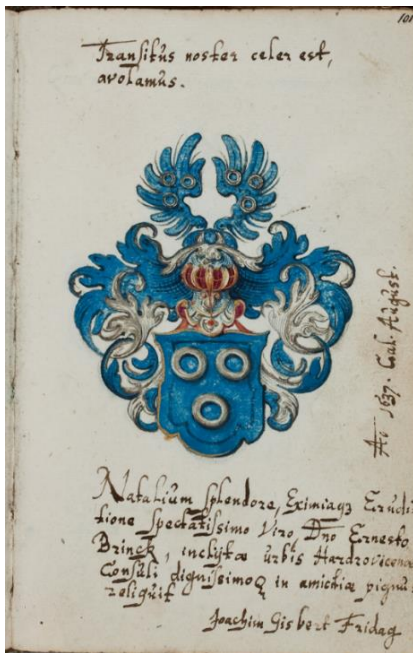 101
Transitus noster celer est,
avolamus.
Aº 1637. Cal. August.
Natalium splendore, Eximiaqꝫ Erudi-
tione Spectatissimo Viro, Dno Ernesto
Brinck, inclytæ urbis Hardrovicena
Consuli dignissimoqꝫ in amicitiæ pignus
reliquit
Joachim Gisbert Fridag